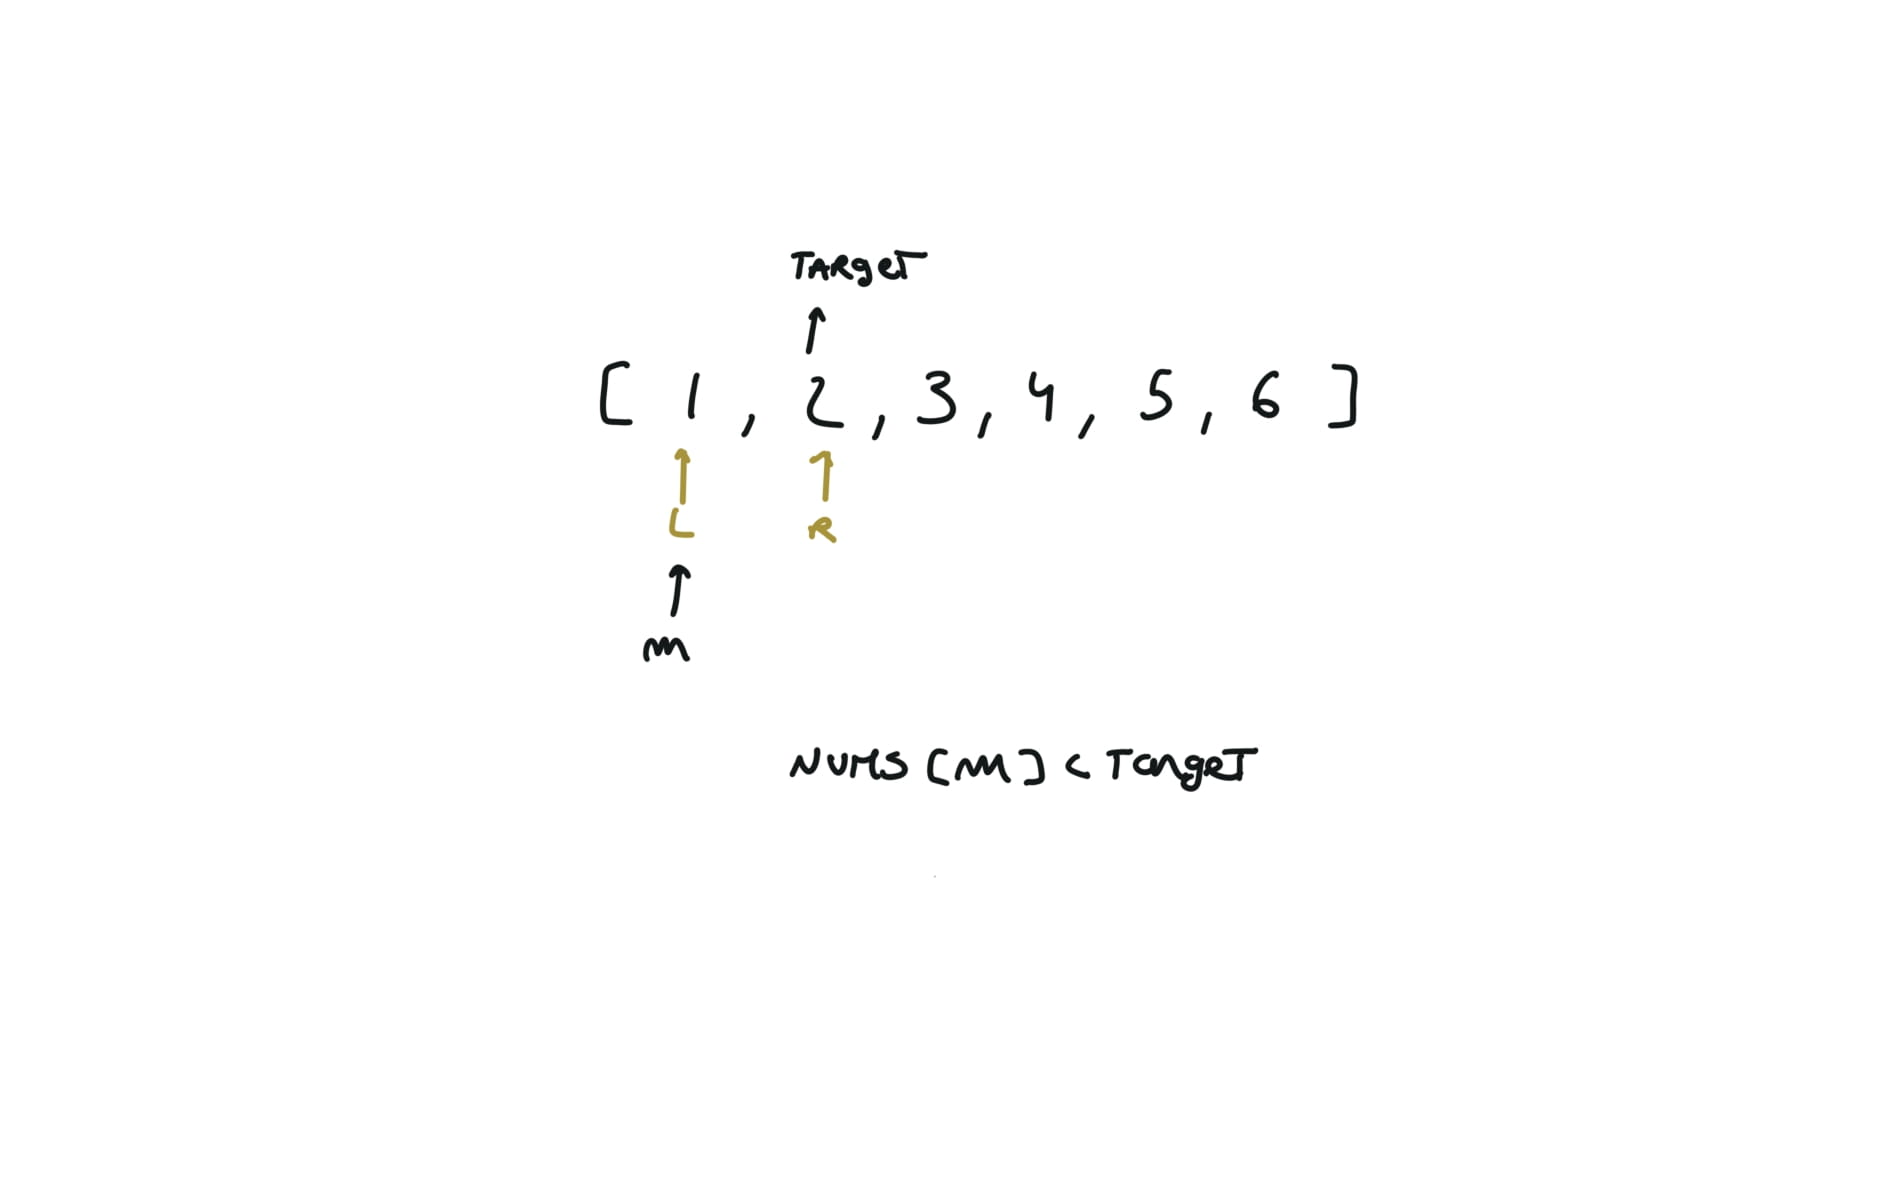 TARgeT
[ 1 , 2 , 3 , 4 , 5 , 6 ]
L R
m
NUMS [m] < TargeT